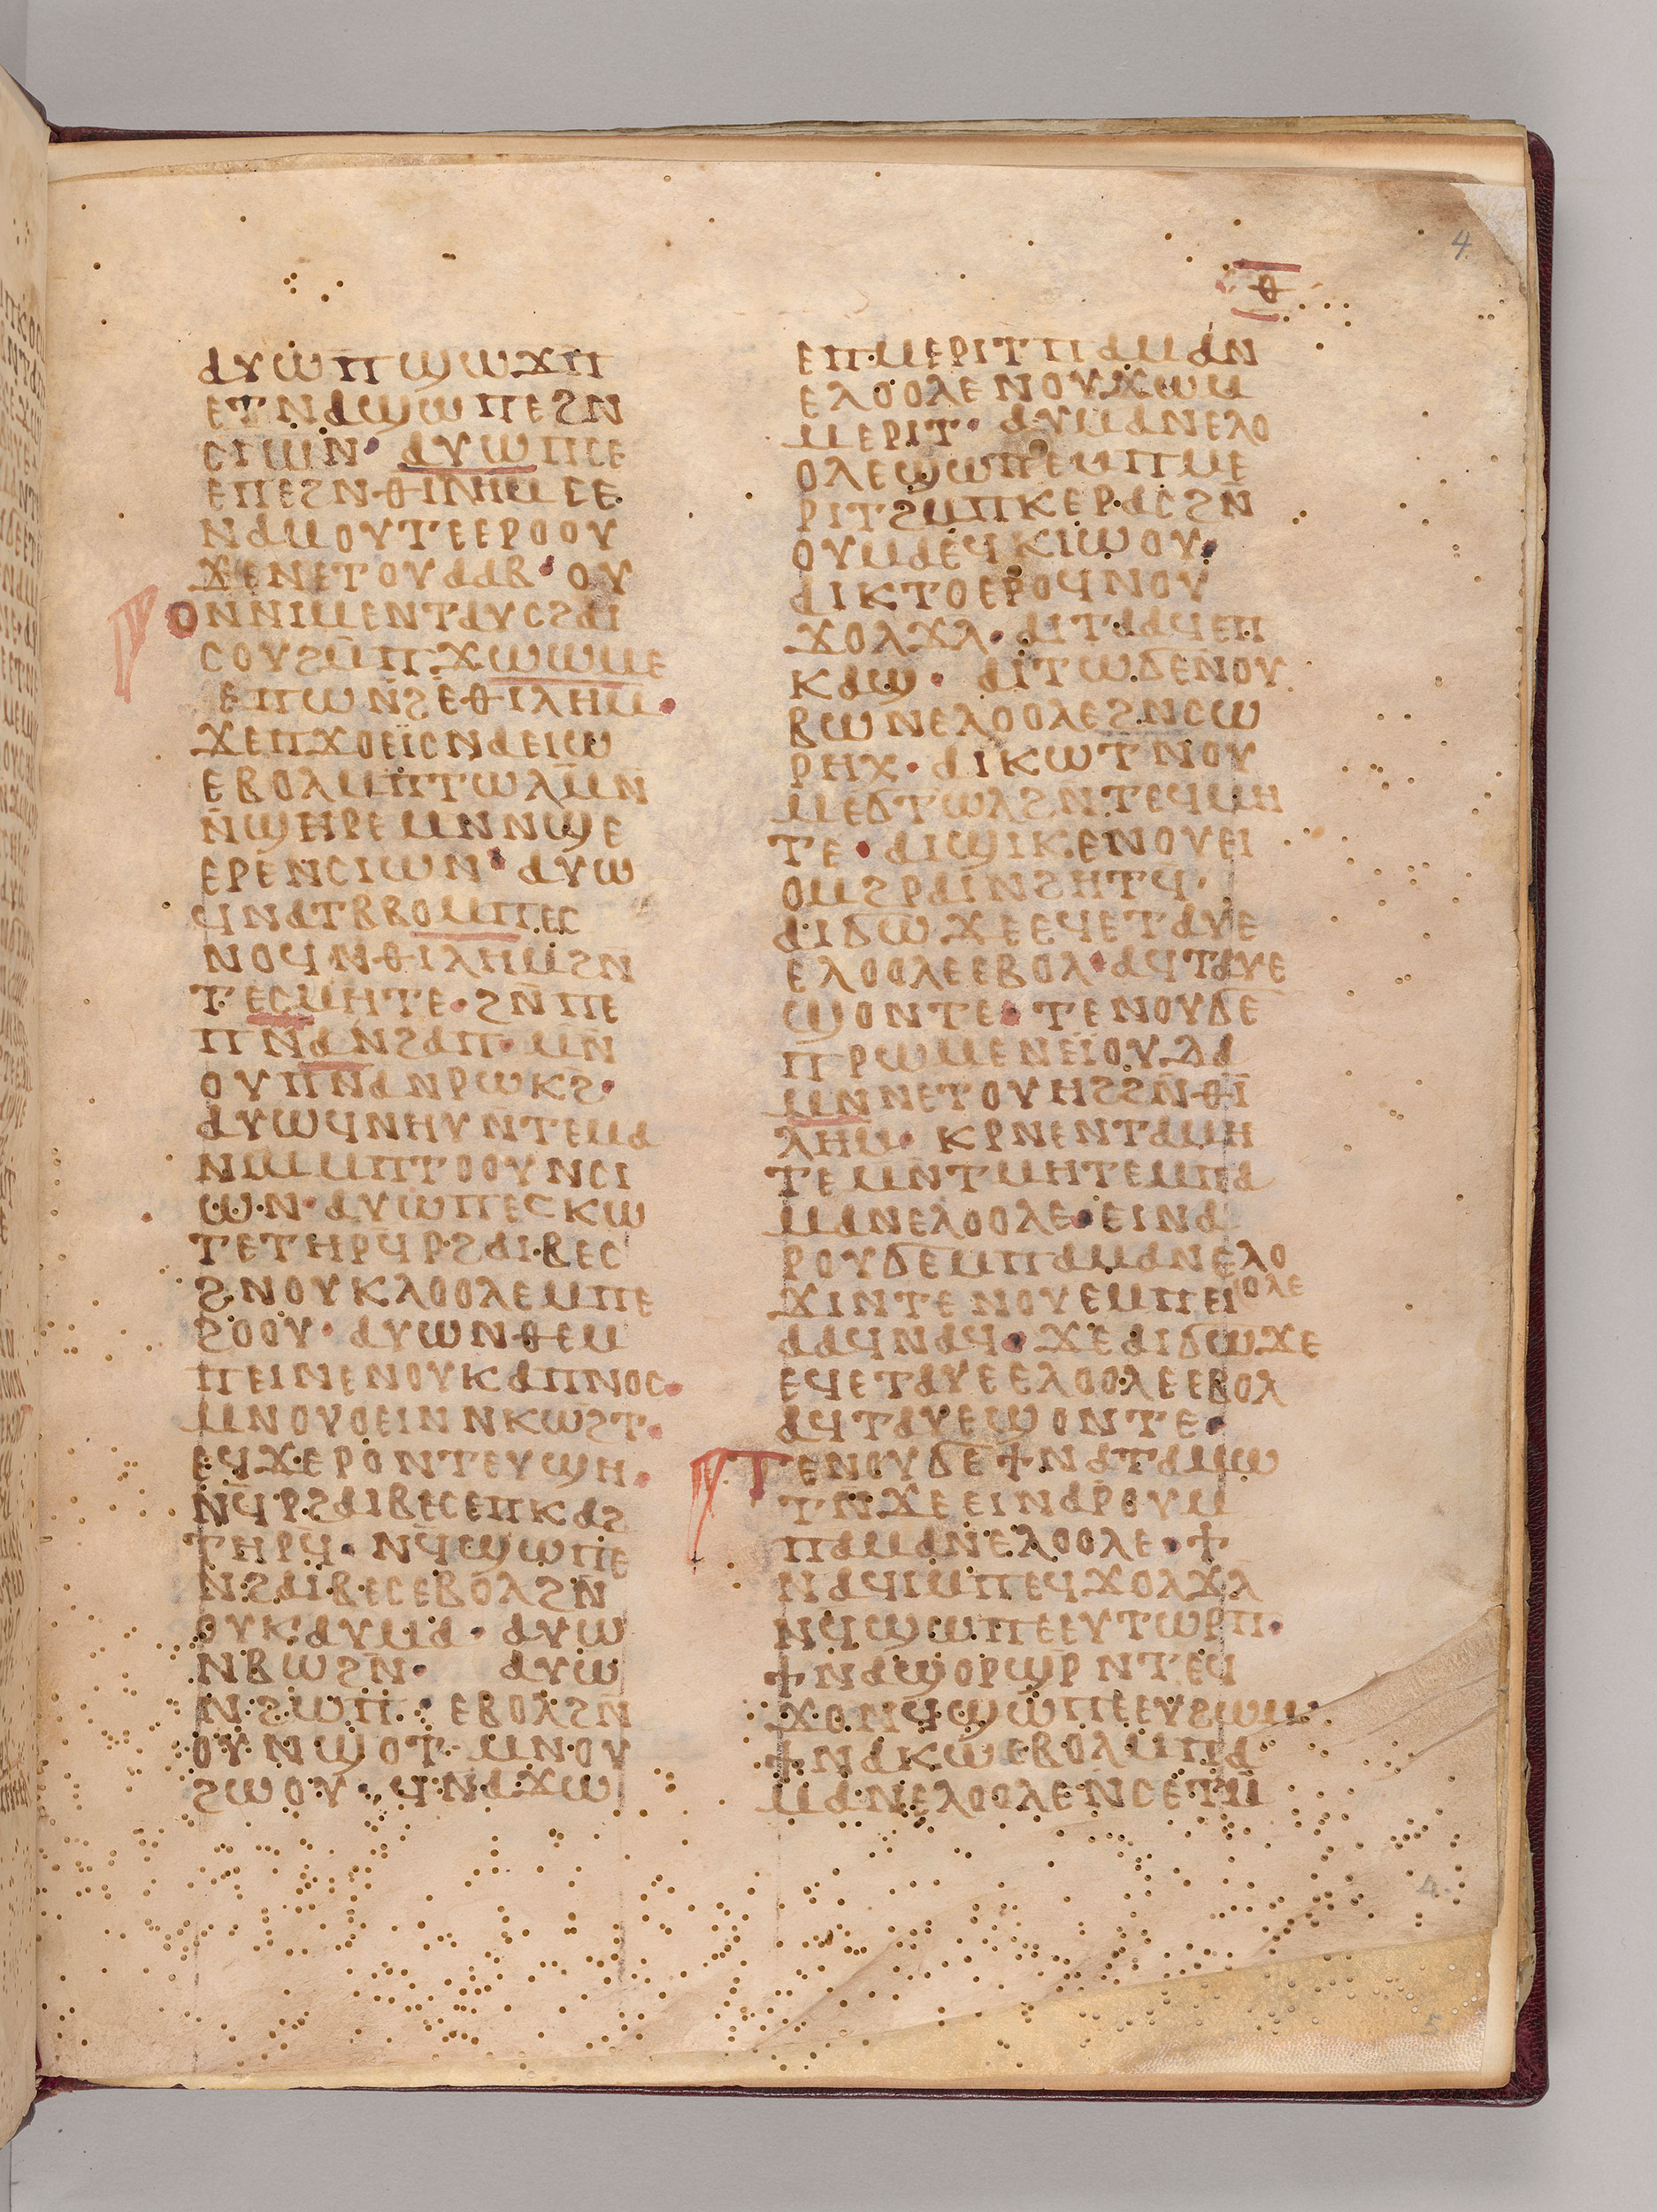 4
ⲑ
ⲁⲩⲱⲡϣⲱϫⲡ
ⲉⲧⲛⲁϣⲱⲡⲉϩⲛ
ⲥⲓⲱⲛ· ⲁⲩⲱⲡⲥⲉ
ⲉⲡⲉϩⲛⲑⲓⲗⲏⲙⲥⲉ
ⲛⲁⲙⲟⲩⲧⲉⲉⲣⲟⲟⲩ
ϫⲉⲛⲉⲧⲟⲩⲁⲁⲃ· ⲟⲩ
ⲟⲛⲛⲓⲙⲉⲛⲧⲁⲩⲥϩⲁⲓ
ⲥⲟⲩϩⲙ̄ⲡϫⲱⲱⲙⲉ
ⲉⲡⲱⲛ̄ϩⲉⲑⲓⲗⲏⲙ·
ϫⲉⲡϫⲟⲉⲓ̈ⲥⲛⲁⲉⲓⲱ
ⲉⲃⲟⲗⲙ̄ⲡⲧⲱⲗⲙ̄ⲛ̄
ⲛ̄ϣⲏⲣⲉⲙⲛⲛϣⲉ
ⲉⲣⲉⲛⲥⲓⲱⲛ· ⲁⲩⲱ
ϥⲛⲁⲧⲃⲃⲟⲙⲡⲉⲥ
ⲛⲟϥⲛⲑⲓⲗⲏⲙϩⲛ
ⲧⲉⲥⲙⲏⲧⲉ· ϩⲛ̄ⲡⲉ
ⲡⲛⲁⲛϩⲁⲡ· ⲙⲛ̄
ⲟⲩⲡⲛⲁⲛⲣⲱⲕϩ·
ⲁⲩⲱϥⲛⲏⲩⲛ̄ⲧⲉⲙⲁ
ⲛⲓⲙⲙⲡⲧⲟⲟⲩⲛⲥⲓ
ⲱⲛ· ⲁⲩⲱⲡⲉⲥⲕⲱ
ⲧⲉⲧⲏⲣϥⲣϩⲁⲓⲃⲉⲥ
ϩⲛⲟⲩⲕⲗⲟⲟⲗⲉⲙⲡⲉ
ϩⲟⲟⲩ· ⲁⲩⲱⲛⲑⲉⲙ
ⲡⲉⲓⲛⲉⲛⲟⲩⲕⲁⲡⲛⲟⲥ·
ⲙⲛⲟⲩⲟⲉⲓⲛⲛⲕⲱϩⲧ·
ⲉϥϫⲉⲣⲟⲛⲧⲉⲩϣⲏ·
ⲛ̄ϥⲣϩⲁⲓⲃⲉⲥⲉⲡⲕⲁϩ
ⲧⲏⲣϥ̄· ⲛϥ̄ϣⲱⲡⲉ
ⲛϩⲁⲓⲃⲉⲥⲉⲃⲟⲗϩⲛ̄
ⲟⲩⲕⲁⲩⲙⲁ· ⲁⲩⲱ
ⲛⲃⲱϩⲛ̄· ⲁⲩⲱ
ⲛϩⲱⲡ· ⲉⲃⲟⲗϩⲛ̄
ⲟⲩⲛϣⲟⲧ· ⲙⲛⲟⲩ
ϩⲱⲟⲩ· ϥⲛⲁϫⲱ
ⲉⲡⲙⲉⲣⲓⲧⲡⲁⲙⲁⲛ
ⲉⲗⲟⲟⲗⲉⲛⲟⲩϫⲱⲙ
ⲙⲉⲣⲓⲧ· ⲁⲩⲙⲁⲛⲉⲗⲟ
ⲟⲗⲉϣⲱⲡⲉⲙⲡⲙⲉ
ⲣⲓⲧϩⲙⲡⲕⲉⲣⲁⲥϩⲛ̄
ⲟⲩⲙⲁⲉϥⲕⲓⲱⲟⲩ·
ⲁⲓⲕⲧⲟⲉⲣⲟϥⲛⲟⲩ
ϫⲟⲗϫⲗ· ⲁⲓⲧⲁⲁϥⲉⲡ
ⲕⲁϣ· ⲁⲓⲧⲱϭⲉⲛⲟⲩ
ⲃⲱⲛⲉⲗⲟⲟⲗⲉϩⲛⲥⲱ
ⲣⲏⲭ· ⲁⲓⲕⲱⲧⲛⲟⲩ
ⲙⲉϭⲧⲱⲗϩⲛⲧⲉϥⲙⲏ
ⲧⲉ· ⲁⲓϣⲓⲕⲉⲛⲟⲩⲉⲓ
ⲟⲙϩⲣⲁⲓⲛϩⲏⲧϥ·
ⲁⲓϭⲱϫⲉⲉϥⲉⲧⲁⲩⲉ
ⲉⲗⲟⲟⲗⲉⲉⲃⲟⲗ· ⲁϥⲧⲁⲩⲉ
ϣⲟⲛⲧⲉ· ⲧⲉⲛⲟⲩϭⲉ
ⲡⲣⲱⲙⲉⲛⲉⲓ̈ⲟⲩⲇⲁ
ⲙⲛⲛⲉⲧⲟⲩⲏϩϩⲛ̄ⲑⲓ
ⲗⲏⲙ· ⲕⲣⲛⲉⲛⲧⲁⲙⲏ
ⲧⲉⲙⲛ̄ⲧⲙⲏⲧⲉⲙⲡⲁ
ⲙⲁⲛⲉⲗⲟⲟⲗⲉ· ⲉⲓⲛⲁ
ⲣⲟⲩϭⲉⲙⲡⲁⲙⲁⲛⲉⲗⲟ
ⲟⲗⲉ
ϫⲓⲛⲧⲉⲛⲟⲩⲉⲙⲡⲉⲓ
ⲁⲁϥⲛⲁϥ· ϫⲉⲁⲓϭⲱϫⲉ
ⲉϥⲉⲧⲁⲩⲉⲉⲗⲟⲟⲗⲉⲉⲃⲟⲗ
ⲁϥⲧⲁⲩⲉϣⲟⲛⲧⲉ·
ⲧⲉⲛⲟⲩϭⲉϯⲛⲁⲧⲁⲙⲱ
ⲧⲛϫⲉⲉⲓⲛⲁⲣⲟⲩⲙ
ⲡⲁⲙⲁⲛⲉⲗⲟⲟⲗⲉ· ϯ
ⲛⲁϥⲓⲙⲡⲉϥϫⲟⲗϫⲗ
ⲛϥϣⲱⲡⲉⲉⲩⲧⲱⲣⲡ·
ϯⲛⲁϣⲟⲣϣⲣⲛⲧⲉϥ
ϫⲟⲛϥ̄ϣⲱⲡⲉⲉⲩϩⲱⲙ·
ϯⲛⲁⲕⲱⲉⲃⲟⲗⲙⲡⲁ
ⲙⲁⲛⲉⲗⲟⲟⲗⲉⲛ̄ⲥⲉⲧⲙ̄
4
5